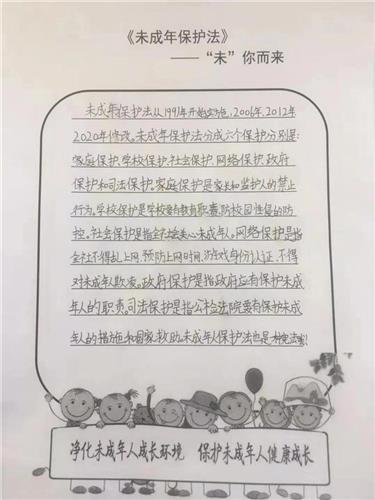 《未成年保护法》
——“未”你而来
未成年保护法从1991年开始实施，2006年、2012年
2020年修改。未成年保护法分成六个保护分别是：
家庭保护、学校保护、社会保护、网络保护、政府
保护和司法保护。家庭保护是家长和监护人的禁止
行为。学校保护是学校要有教育职责，防校园性侵的防
控。社会保护是指全社会关心未成年人。网络保护是指
全社不得乱上网，预防上网时间，游戏身份认证，不得
对未成年欺凌。政府保护是指政府应有保护未成
年人的职责。司法保护是指公检法院要有保护未成
年人的措施和国家救助。未成年人保护法也是
净化未成年人成长环境 保护未成年人健康成长